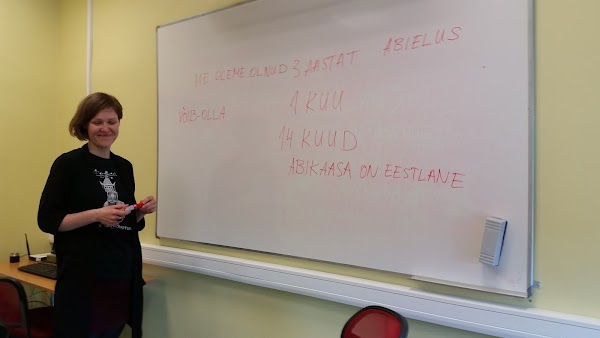 ME OLEME OLNUD 3 AASTAT ABIELUS
1 KUU
VÕIB-OLLA
14 KUUD
ABIKAASA ON EESTLANE